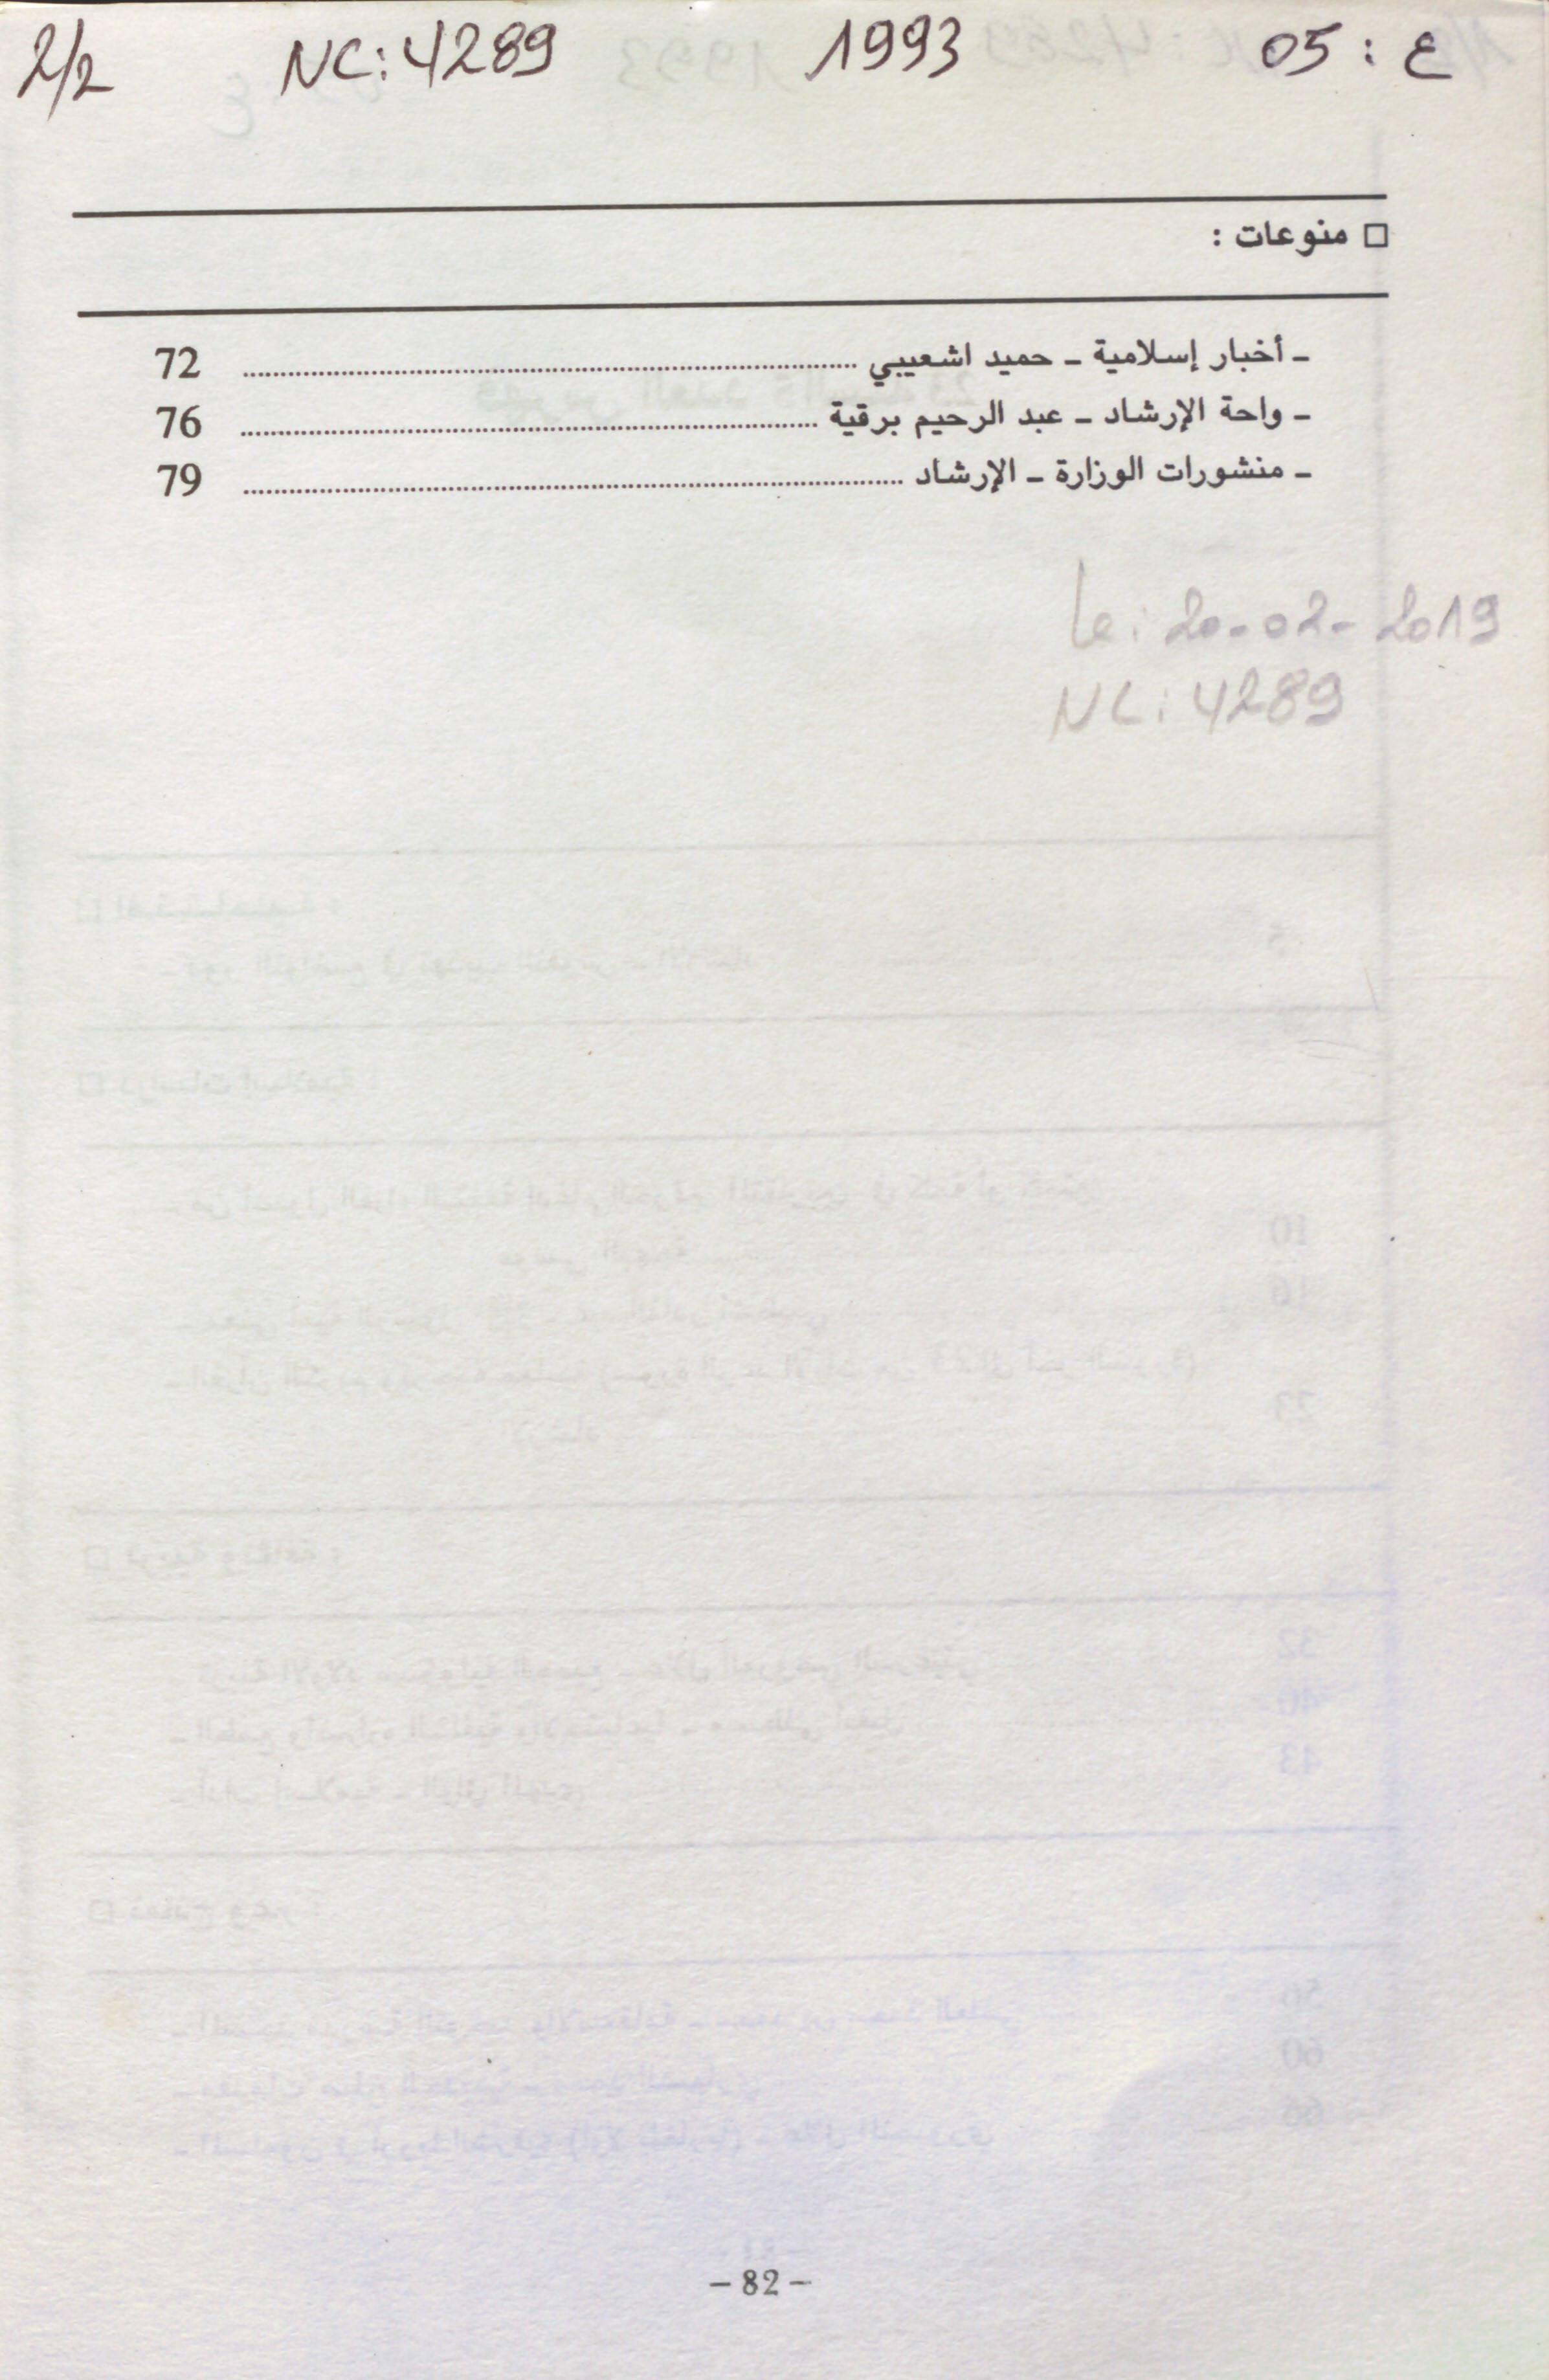 2/2 NC: 4289 1993 ع : 05
□ منوعات :
ـ أخبار إسلامية ـ حميد اشعيبي ........ 72
ـ واحة الإرشاد ـ عبد الرحيم برقية ........ 76
ـ منشورات الوزارة ـ الإرشاد ........ 79
Le: 20-02-2019
NC: 4289
– 82 –